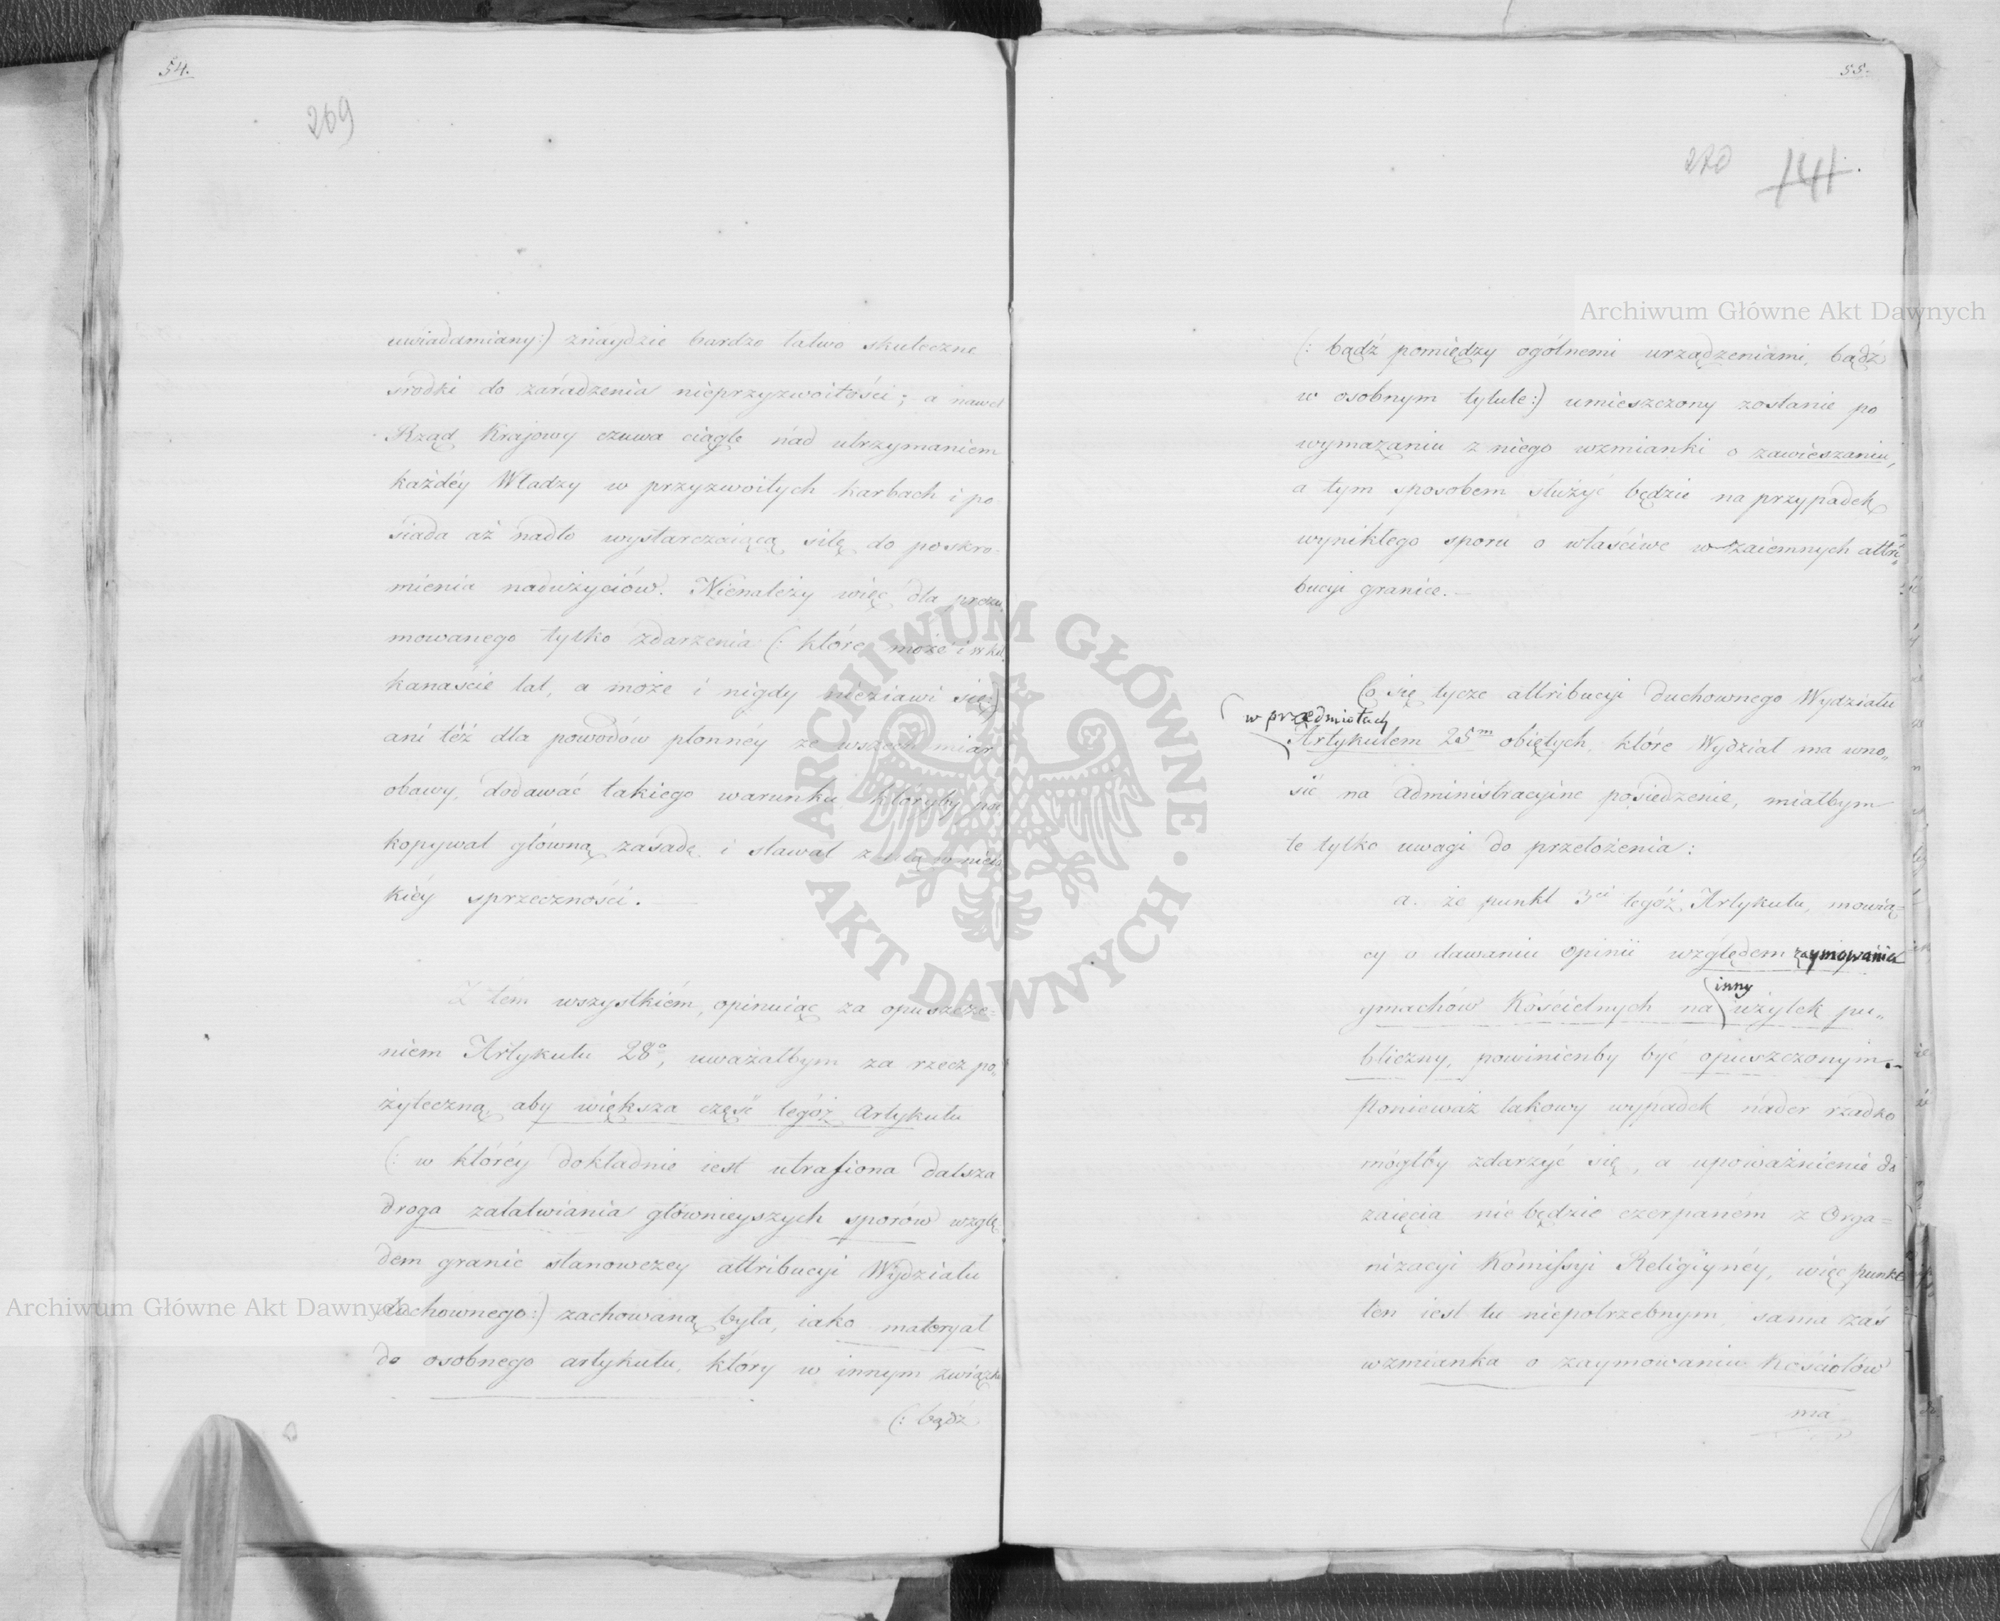 54.
269
uwiadamiany:) znaydzie bardzo łatwo skuteczne
środki do zaradzenia nieprzyzwoitości; a nawet
Rząd Krajowy czuwa ciągle nad utrzymaniem
każdéy Władzy w przyzwoitych karbach i po-
siada aż nadto wystarczaiącą siłę do poskro-
mienia nadużyciów. Nienależy więc dla prezu-
mowanego tylko zdarzenia (: które może i w kil-
kanaście lat, a może i nigdy nieziawi się:)
ani téż dla powodów płonnéy ze wszech miar
obawy, dodawać takiego warunku, któryby po-
kopywał główną zasadę i stawał z nią w nieia-
kiéy sprzeczności.
Z tém wszystkiém, opinuiąc za opuszcze-
niem Artykułu 28º, uważałbym za rzecz po-
żyteczną, aby większa część tegóż Artykułu
(: w któréy dokładnie iest utrafiona dalsza
droga załatwiania główneyszych sporów wzglę-
dem granic stanowczey attribucyi Wydziału
duchownego:) zachowaną była, iako materyał
do osobnego artykułu, który w innym związku
(: bądź
55.
270 141.
(: bądź pomiędzy ogólnemi urządzeniami, bądź
w osobnym tytule:) umieszczony zostanie po
wymazaniu z niego wzmianki o zawieszaniu,
a tym sposobem służyć będzie na przypadek
wynikłego sporu o właściwe wzaiemnych attri-
bucyi granice.
Co się tycze attribucyi duchownego Wydziału
w przedmiotach
Artykułem 25m objętych, które Wydział ma wno-
sić na administracyine posiedzenie, miałbym
te tylko uwagi do przełożenia:
a. że punkt 3ci tegóż Artykułu, mówią-
cy o dawaniu opinii względem zaymowania
inny
gmachów Kościelnych na użytek pu-
bliczny, powinienby być opuszczonym.
Ponieważ takowy wypadek nader rzadko
mógłby zdarzyć się, a upoważnienie do
zaięcia nie będzie czerpaném z Orga-
nizacyi Komissyi Religiynéy, więc punkt
ten iest tu niepotrzebnym, sama zaś
wzmianka o zaymowaniu Kościołów
ma
Archiwum Główne Akt Dawnych
Archiwum Główne Akt Dawnych
ARCHIWUM GŁÓWNE · AKT DAWNYCH ·